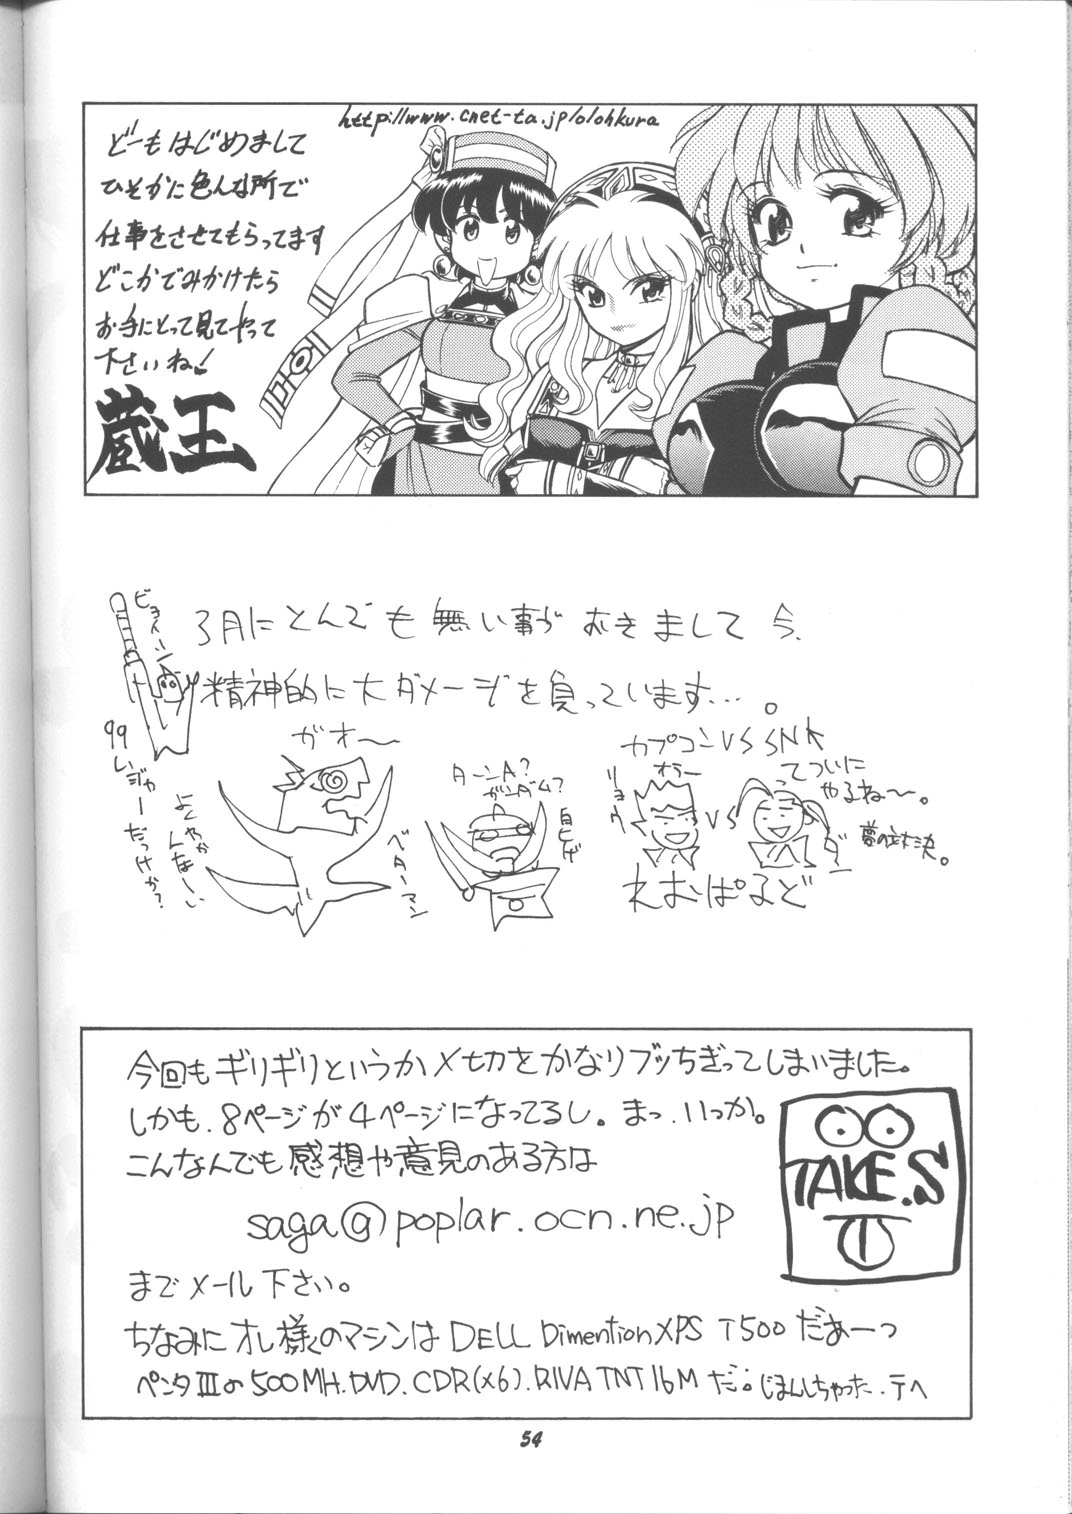 http://www.cnet-ta.jp/o/ohkura
どーもはじめまして
ひそかに色んな所で
仕事をさせてもらってます
どこかでみかけたら
お手にとって見てやって
下さいね!
蔵王
ピョイーン
3月にとんでも無い事がおきまして今、
精神的に大ダメージを負っています…。
99
レジャーだっけか?
よくやかんなーい
ガオ〜
ベターマン
ターンA?
ガンダム?
白ヒゲ
カプコンVS SNK
リョウ
オラー
VS
ってついに
やるね〜。
夢の対決。
れおぱるど
今回もギリギリというかメ切をかなりブッちぎってしまいました。
しかも、8ページが4ページになってるし。まっ、いっか。
こんなんでも感想や意見のある方は
saga@poplar.ocn.ne.jp
までメール下さい。
TAKE.S
ちなみにオレ様のマシンはDELL DimentionXPS T500だぁーっ
ペンタIIIの500MH.DVD.CDR(x6).RIVA TNT 16Mだ。じまんしちゃった.テヘ
54